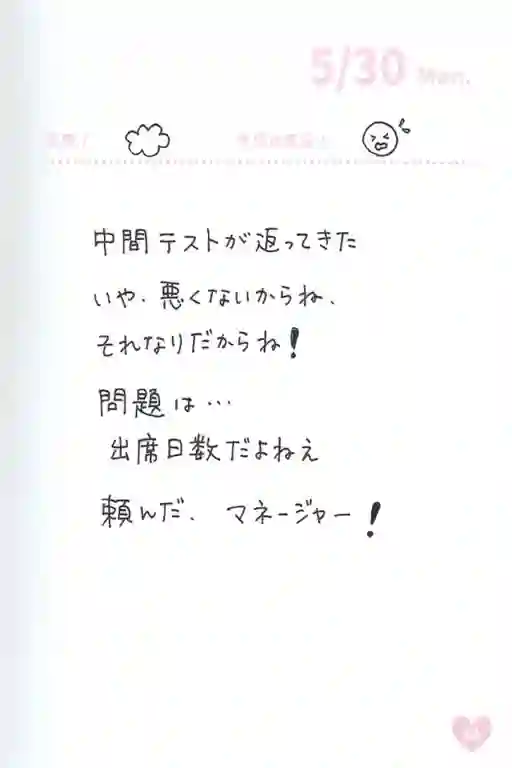 5/30 Mon.
中間テストが返ってきた
いや、悪くないからね、
それなりだからね!
問題は…
出席日数だよねえ
頼んだ、マネージャー!